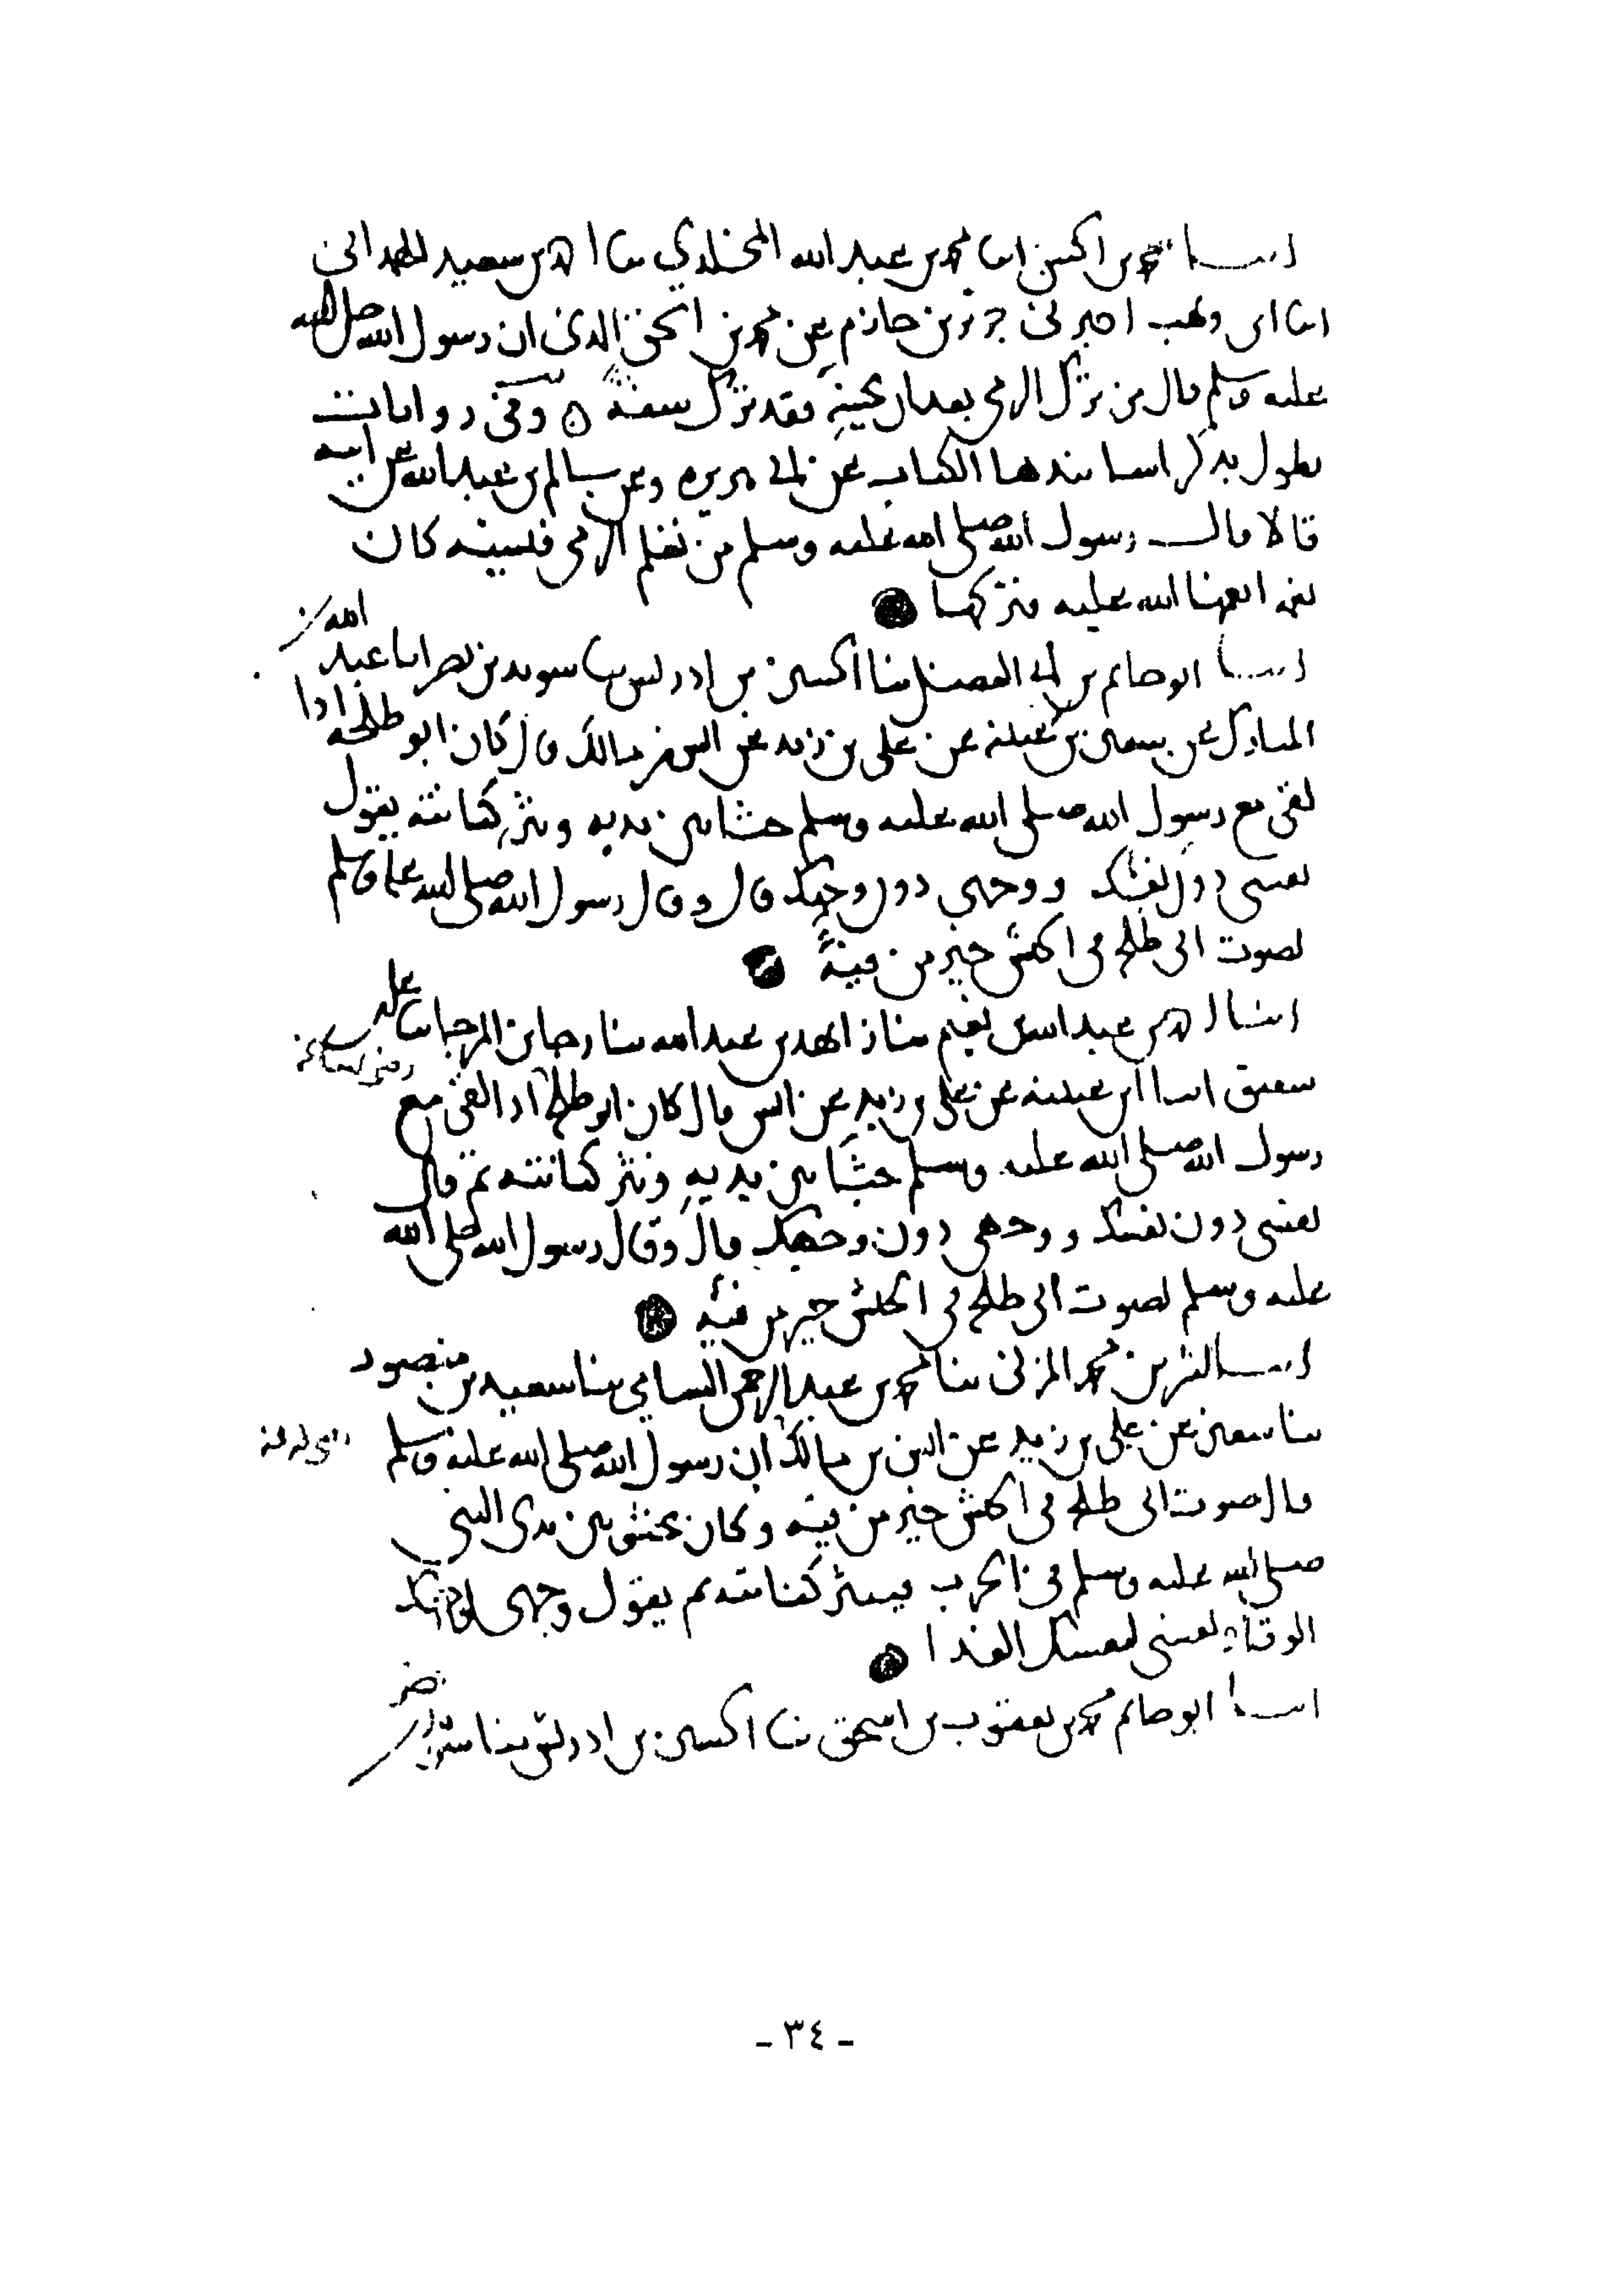 انبا محمد بن الحسن انبا محمد بن عبد الله المخلدي ثنا احمد بن سعيد الهمداني
انبا ابن وهب اخبرني جرير بن حازم عن محمد بن اسحق ان رسول الله صلى الله
عليه وسلم قال من ترك الرمي بعد ان يحسنه فقد ترك سنة ۝ وفي روايات
يطول بذكر اسانيدها الكتاب عن ابي هريره وعن سالم بن عبد الله عن ابيه
قالا قال رسول الله صلى الله عليه وسلم من تعلم الرمي فنسيه كان
نعمه انعمها الله عليه فتركها
انبا ابو حاتم بن ابي الفضل ثنا الحسين بن ادريس ثنا سويد بن نصر انبا عبد الله بن
المبارك عن سفين بن عيينه عن علي بن زيد عن انس بن مالك قال كان ابو طلحه اذا
لقي مع رسول الله صلى الله عليه وسلم جثا بين يديه ونثر كنانته يقول
نفسي دون نفسك ووجهي دون وجهك قال وقال رسول الله صلى الله عليه وسلم
لصوت ابي طلحه في الجيش خير من فئة
انبا احمد بن عبد الله بن نعيم ثنا زاهد بن عبد الله ثنا رجا بن المرجا ثنا علي
شقيق انبا ابن عيينه عن علي بن زيد عن انس قال كان ابو طلحه اذا لقي مع
رسول الله صلى الله عليه وسلم جثا بين يديه ونثر كنانته ثم قال
نفسي دون نفسك ووجهي دون وجهك قال وقال رسول الله صلى الله
عليه وسلم لصوت ابي طلحه في الجيش خير من فئه
انبا بشر بن محمد المزني ثنا محمد بن عبد الرحمن السامي ثنا سعيد بن منصور
ثنا سفين عن علي بن زيد عن انس بن مالك ان رسول الله صلى الله عليه وسلم
قال صوت ابي طلحه في الجيش خير من فئه وكان يجثو بين يدي النبي
صلى الله عليه وسلم في الحرب فينثر كنانته ثم يقول وجهي لوجهك
الوقا ونفسي لنفسك الفدا
انبا ابو حاتم محمد بن يعقوب بن اسحق ثنا الحسين بن ادريس ثنا سويد بن نصر
- ٣٤ -